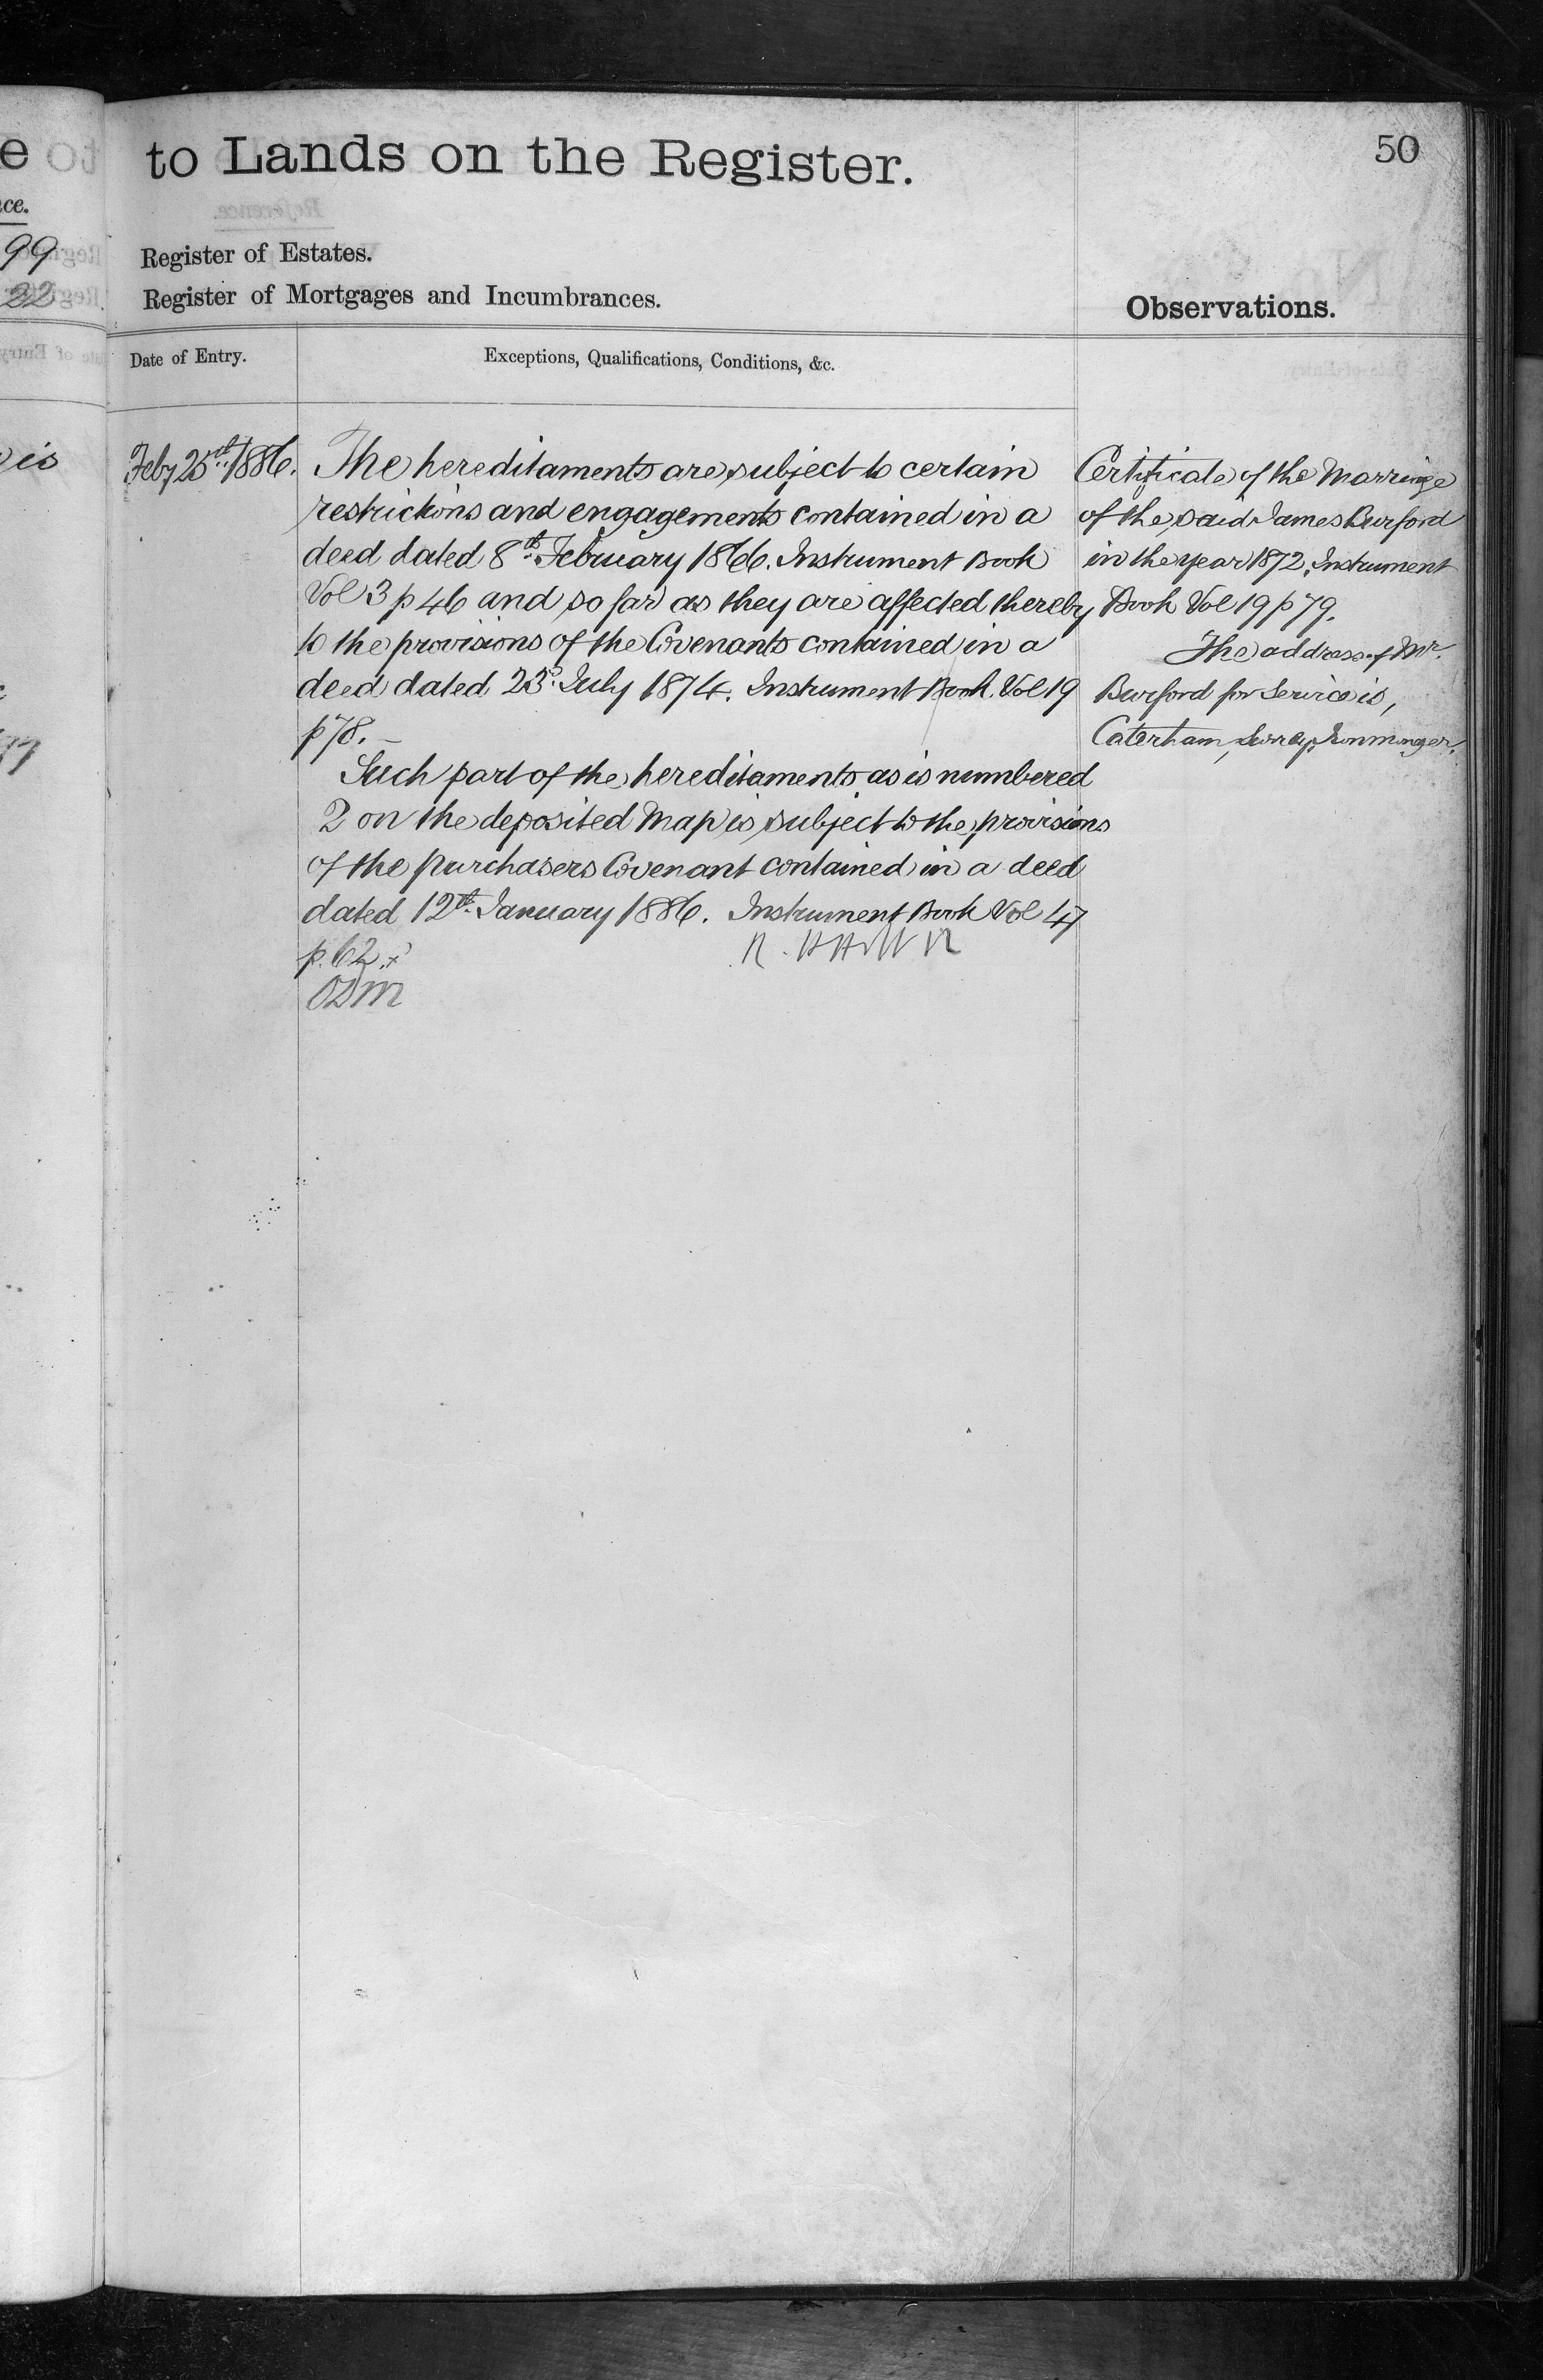 to Lands on the Register.
50
Register of Estates.
Register of Mortgages and Incumbrances.
Observations.
Date of Entry.
Exceptions, Qualifications, Conditions, &c.
Feby 25th 1886.
The hereditaments are subject to certain
restrictions and engagements contained in a
deed dated 8th February 1866. Instrument Book
Vol 3 p 46 and so far as they are affected thereby
to the provisions of the Covenants contained in a
deed dated 23rd July 1874. Instrument Book Vol 19
p 78.
Such part of the hereditaments as is numbered
2 on the deposited Map is subject to the provisions
of the purchasers Covenant contained in a deed
dated 12th January 1886. Instrument Book Vol 47
p. 62.
Certificate of the Marriage
of the said James Burford
in the year 1872, Instrument
Book Vol 19 p 79.
The address of Mr.
Burford for Service is,
Caterham, Surrey, Ironmonger.
e
ce.
99
22
is